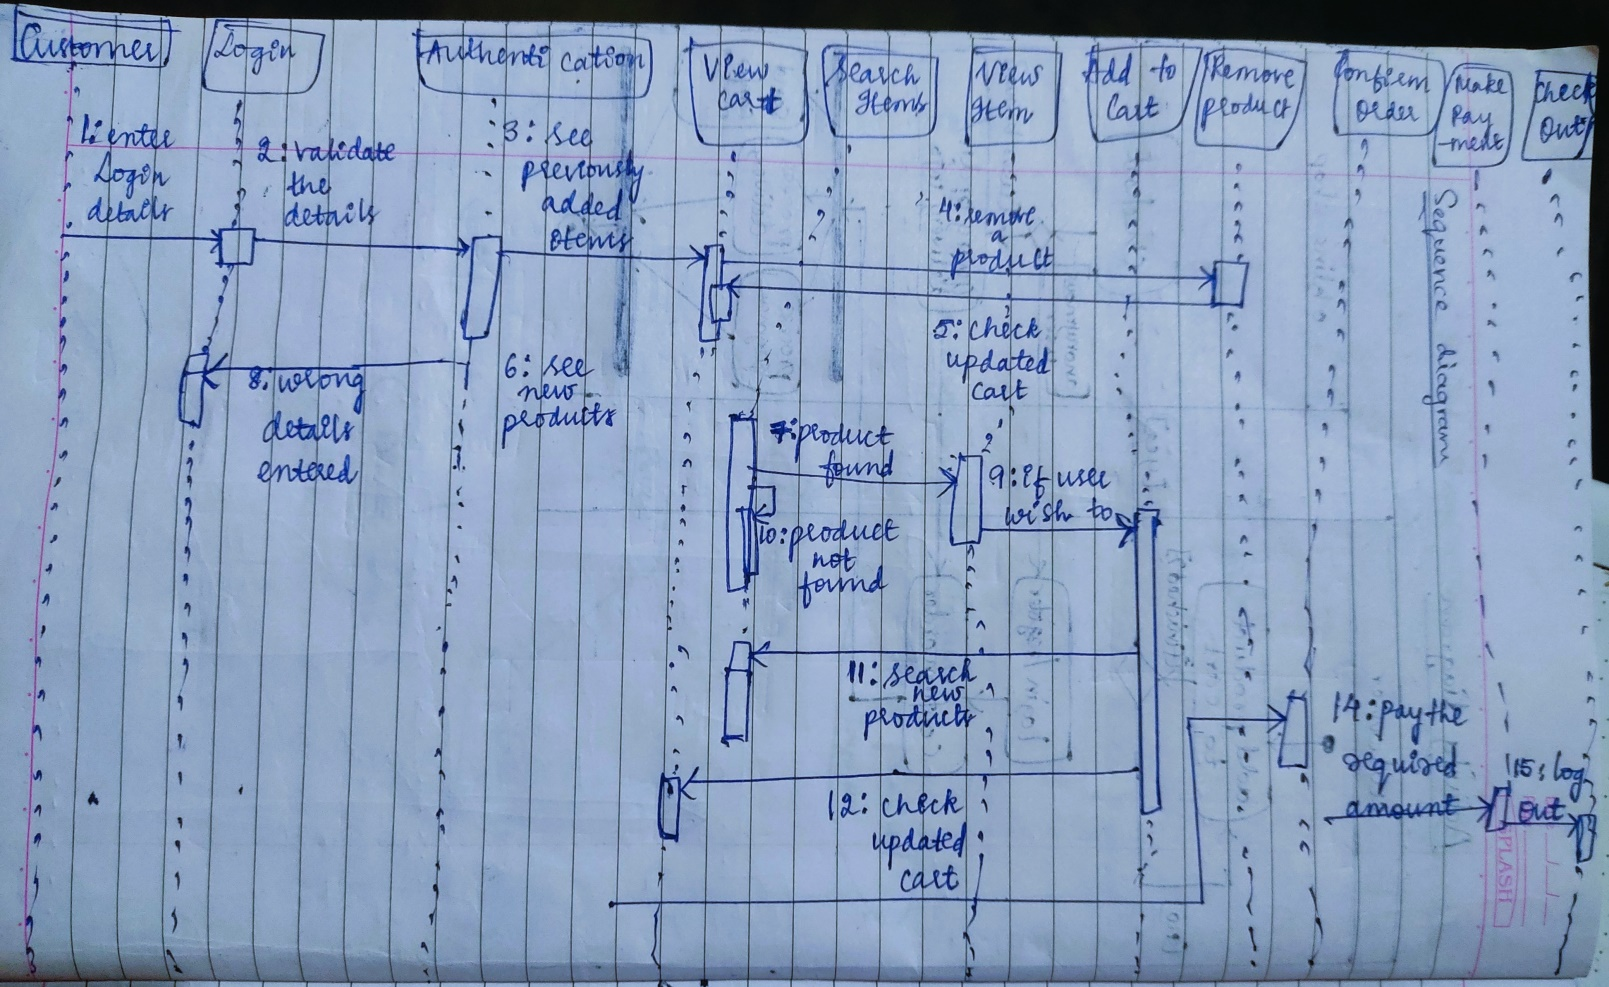 Customer
Login
Authentication
View
Cart
Search
Items
View
Item
Add to
Cart
Remove
product
Confirm
Order
Make
Pay
-ment
Check
Out
1: enter
Login
details
2: validate
the
details
3: see
previously
added
items
4: remove
a
product
5: check
updated
cart
6: see
new
products
7: product
found
8: wrong
details
entered
9: if user
wish to
10: product
not
found
11: search
new
products
12: check
updated
cart
14: pay the
required
amount
15: log
out
Sequence diagram
SPLASH